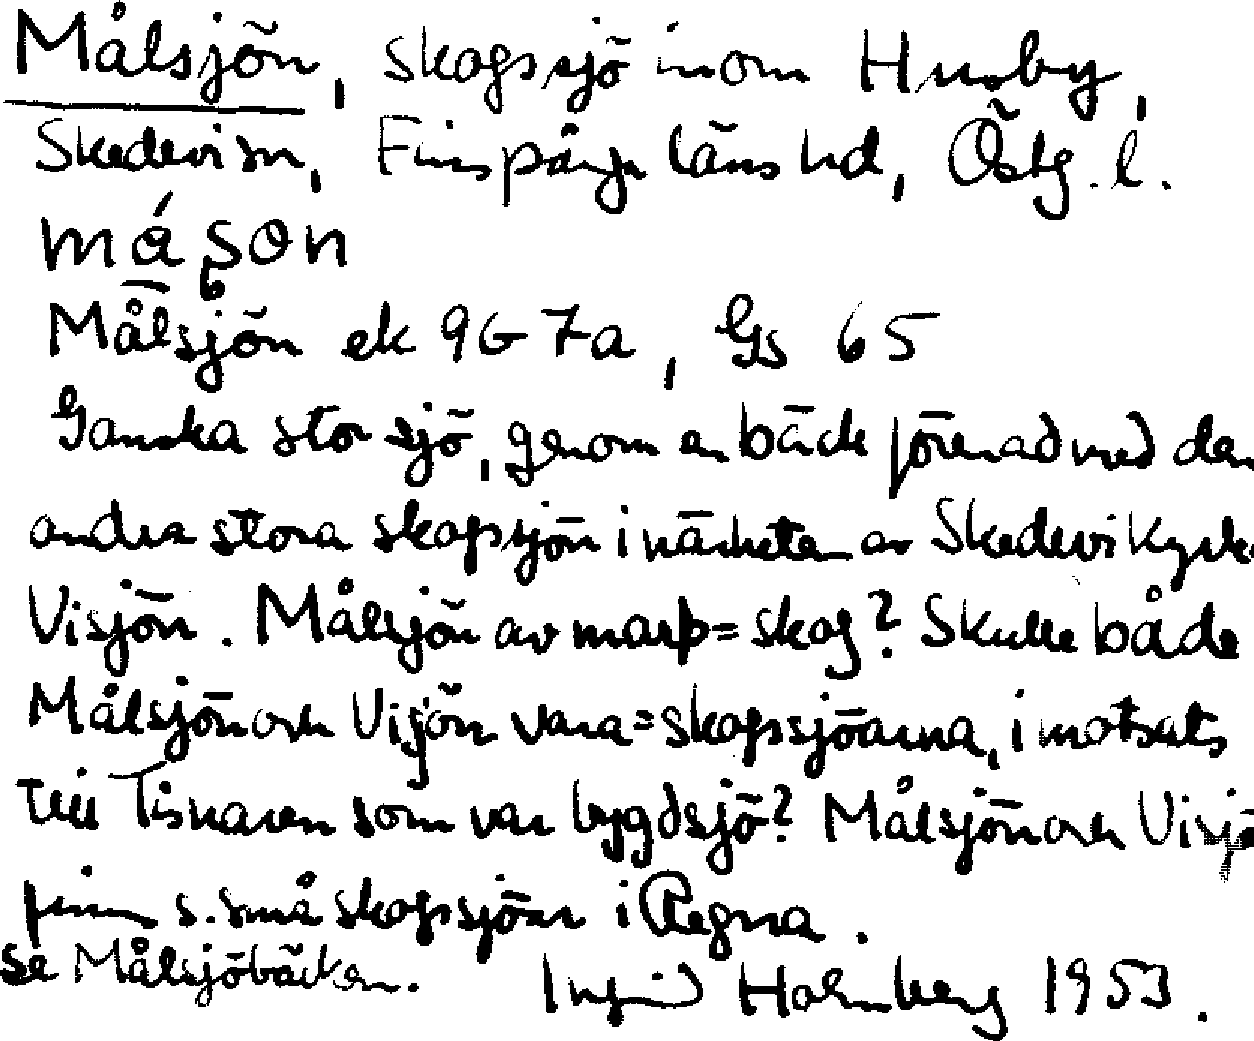 Målsjön, skogssjö inom Husby,
Skedevi sn, Finspånga läns hd, Östg. l.
måson
Målsjön ek 9G 7a, Gs 65
Ganska stor sjö, genom en bäck förenad med den
andra stora skogssjön i närheten av Skedevi kyrka
Visjön. Målsjön av marþ = skog? Skulle både
Målsjön och Visjön vara = skogssjöarna, i motsats
till Tisnaren som var bygdsjö? Målsjön och Visjö
finns s. små skogssjöar i Regna.
se Målsjöbäcken. Ingrid Holmberg 1953.